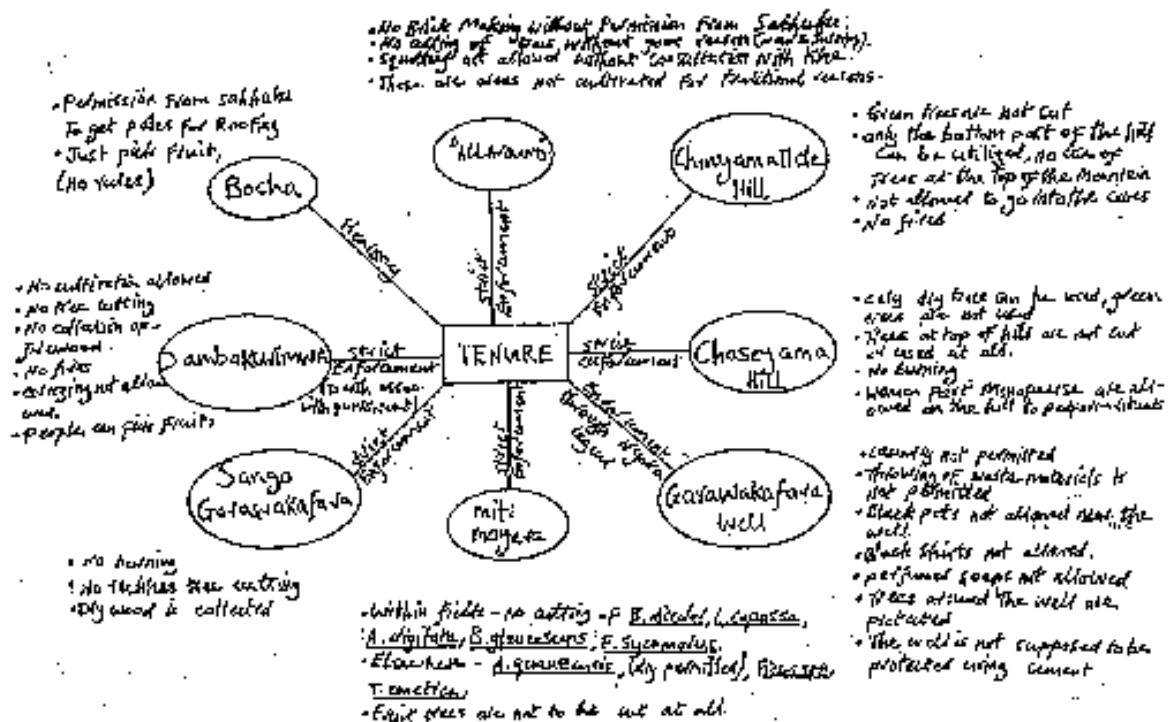 • No Brick Making without Permission From Sabhuku.
• No cutting of trees without good reason
• Squatting not allowed without consultation with
• There are areas not cultivated for traditional reasons.
• Permission From sabhuku
To get poles for Roofing
• Just pick Fruit,
(No rules)
Bocha
All Around
Chinyamatede
Hill
• Green trees are not cut
• only the bottom part of the hill
can be utilized, no use of
trees at the Top of the Mountain
• Not allowed to go into the caves
• No fires
strict
Enforcement
strict
Enforcement
• No cultivation allowed
• No tree cutting
• No collection of
firewood.
• No fires
• not allowed.
• People can pick fruits
strict
Enforcement
TENURE
strict
enforcement
Chaseyama
Hill
• only dry trees can be used, green
trees are not used
• Trees at top of hills are not cut
or used at all.
• No burning
• Women Past Menopause are all-
owed on the hill to perform rituals
strict
Enforcement
strict
Enforcement
through
Sango
Garawakafara
miti
Garawakafara
Well
• Laundry not permitted
• Throwing of waste materials is
not permitted
• Black pots not allowed near the
well.
• Black shirts not allowed.
• perfumed soaps not allowed
• Trees around the well are
protected
• The well is not supposed to be
protected using cement
• No burning
• No tree cutting
• Dry wood is collected
• Within fields - no cutting of B. discolor, L. capassa,
A. digitata, B. glaucescens, F. sycomorus.
• Elsewhere - A. quanzensis, (dry permitted),
T. emetica,
• Fruit trees are not to be cut at all.